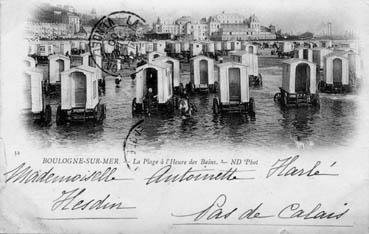 52
BOULOGNE-SUR-MER. — La Plage à l'Heure des Bains. — ND Phot
Mademoiselle Antoinette Harlé
Hesdin
Pas de Calais